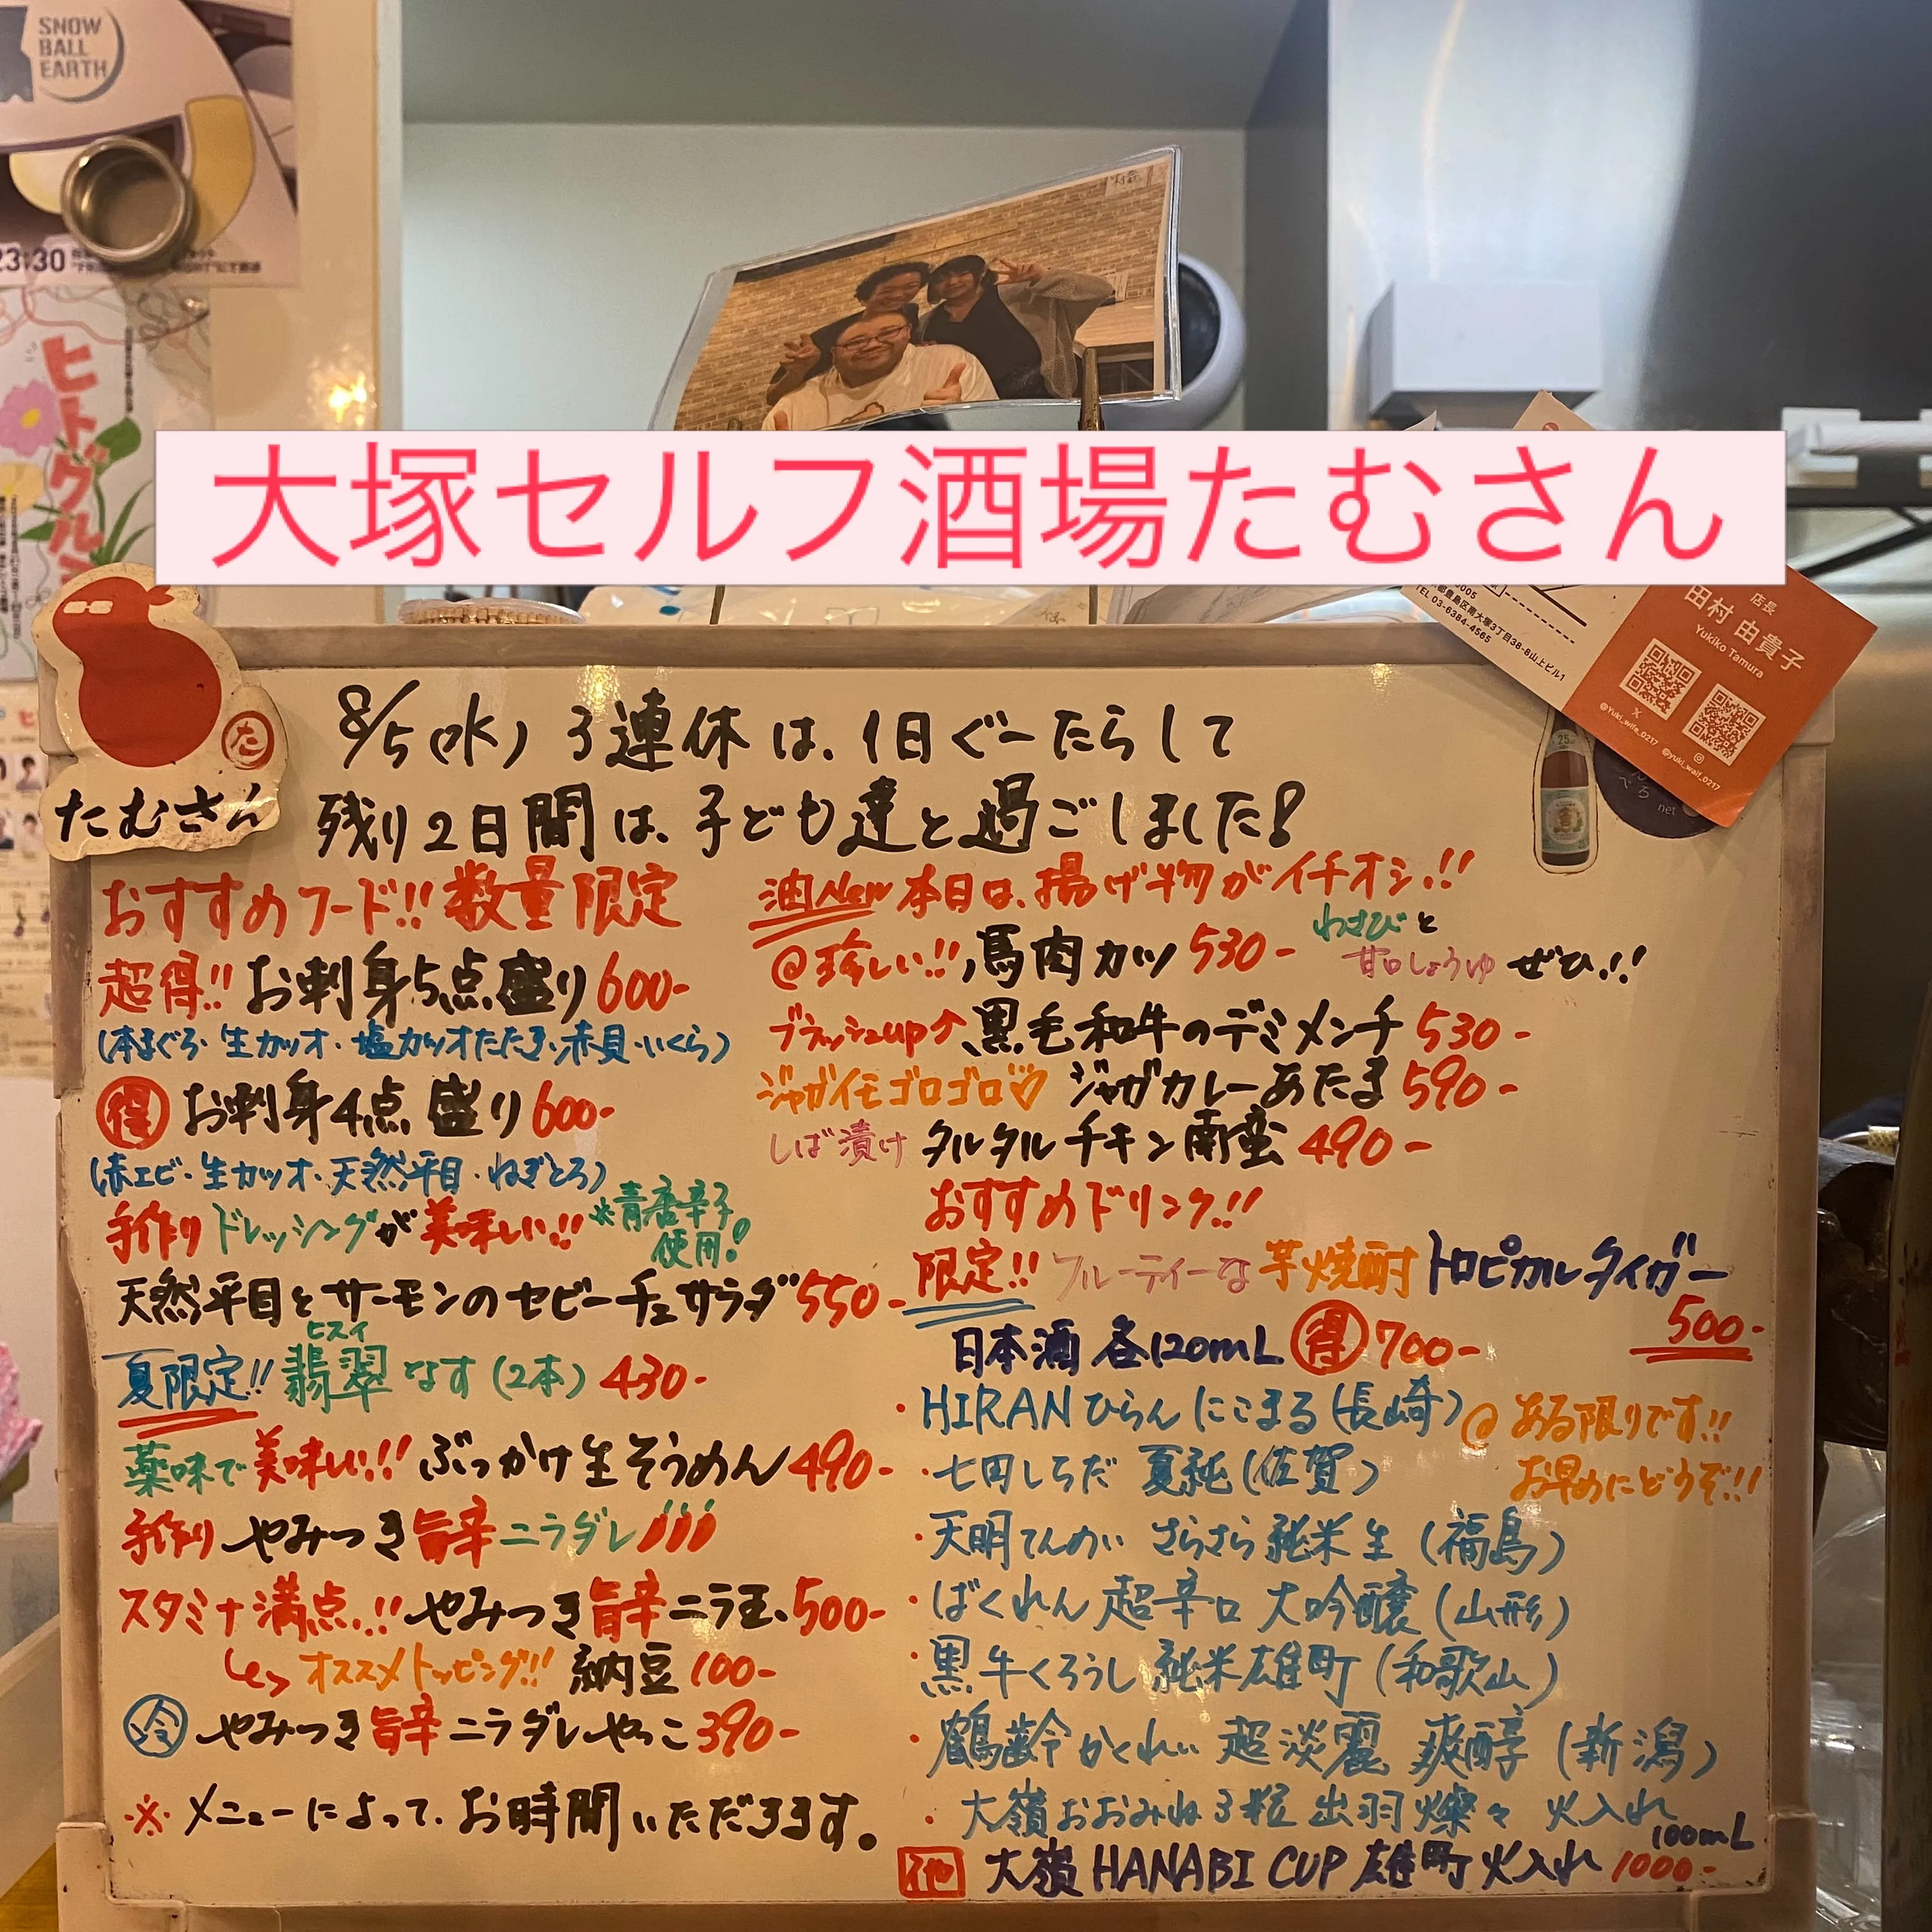 SNOW
BALL
EARTH
23:30
ヒトグル
大塚セルフ酒場たむさん
TEL 03-6384-4565
都豊島区南大塚3丁目38-8山上ビル1
店長
田村 由貴子
Yukiko Tamura
@Yuki_wife_0217
@yuki_waif_0217
net
た
たむさん
8/5(水) 3連休は、1日ぐーたらして
残り2日間は、子ども達と過ごしました!
おすすめフード!! 数量限定
超得!! お刺身5点盛り 600-
(本まぐろ・生カツオ・塩カツオたたき・赤貝・いくら)
得 お刺身4点盛り 600-
(赤エビ・生カツオ・天然平目・ねぎとろ)
手作りドレッシングが美味しい!! ※青唐辛子使用!
天然平目とサーモンのセビーチェサラダ 550-
夏限定!! 翡翠なす(2本) 430-
ヒスイ
薬味で美味しい!! ぶっかけ生そうめん 490-
手作り やみつき旨辛ニラダレ
スタミナ満点!! やみつき旨辛ニラ玉 500-
オススメトッピング!! 納豆 100-
冷 やみつき旨辛ニラダレやっこ 390-
※メニューによって、お時間いただきます。
油New 本日は、揚げ物がイチオシ!!
@珍しい!! 馬肉カツ 530- わさびと甘口しょうゆ ぜひ!!
ブラッシュup↑ 黒毛和牛のデミメンチ 530-
ジャガイモゴロゴロ♡ ジャガカレーあたま 590-
しば漬け タルタルチキン南蛮 490-
おすすめドリンク!!
限定!! フルーティーな芋焼酎 トロピカルタイガー
500-
日本酒 各120mL 得 700-
・HIRAN ひらん にこまる (長崎)
@ある限りです!!
お早めにどうぞ!!
・七田しちだ 夏純 (佐賀)
・天明てんめい さらさら純米生 (福島)
・ばくれん 超辛口 大吟醸 (山形)
・黒牛くろうし 純米雄町 (和歌山)
・鶴齢かくれい 超淡麗 爽醇 (新潟)
・大嶺おおみね 3粒 出羽燦々 火入れ
100mL
大嶺 HANABI CUP 雄町 火入れ 1000-